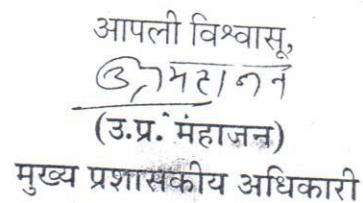 आपली विश्वासू,
(उ.प्र. मंहाजन)
मुख्य प्रशासकीय अधिकारी